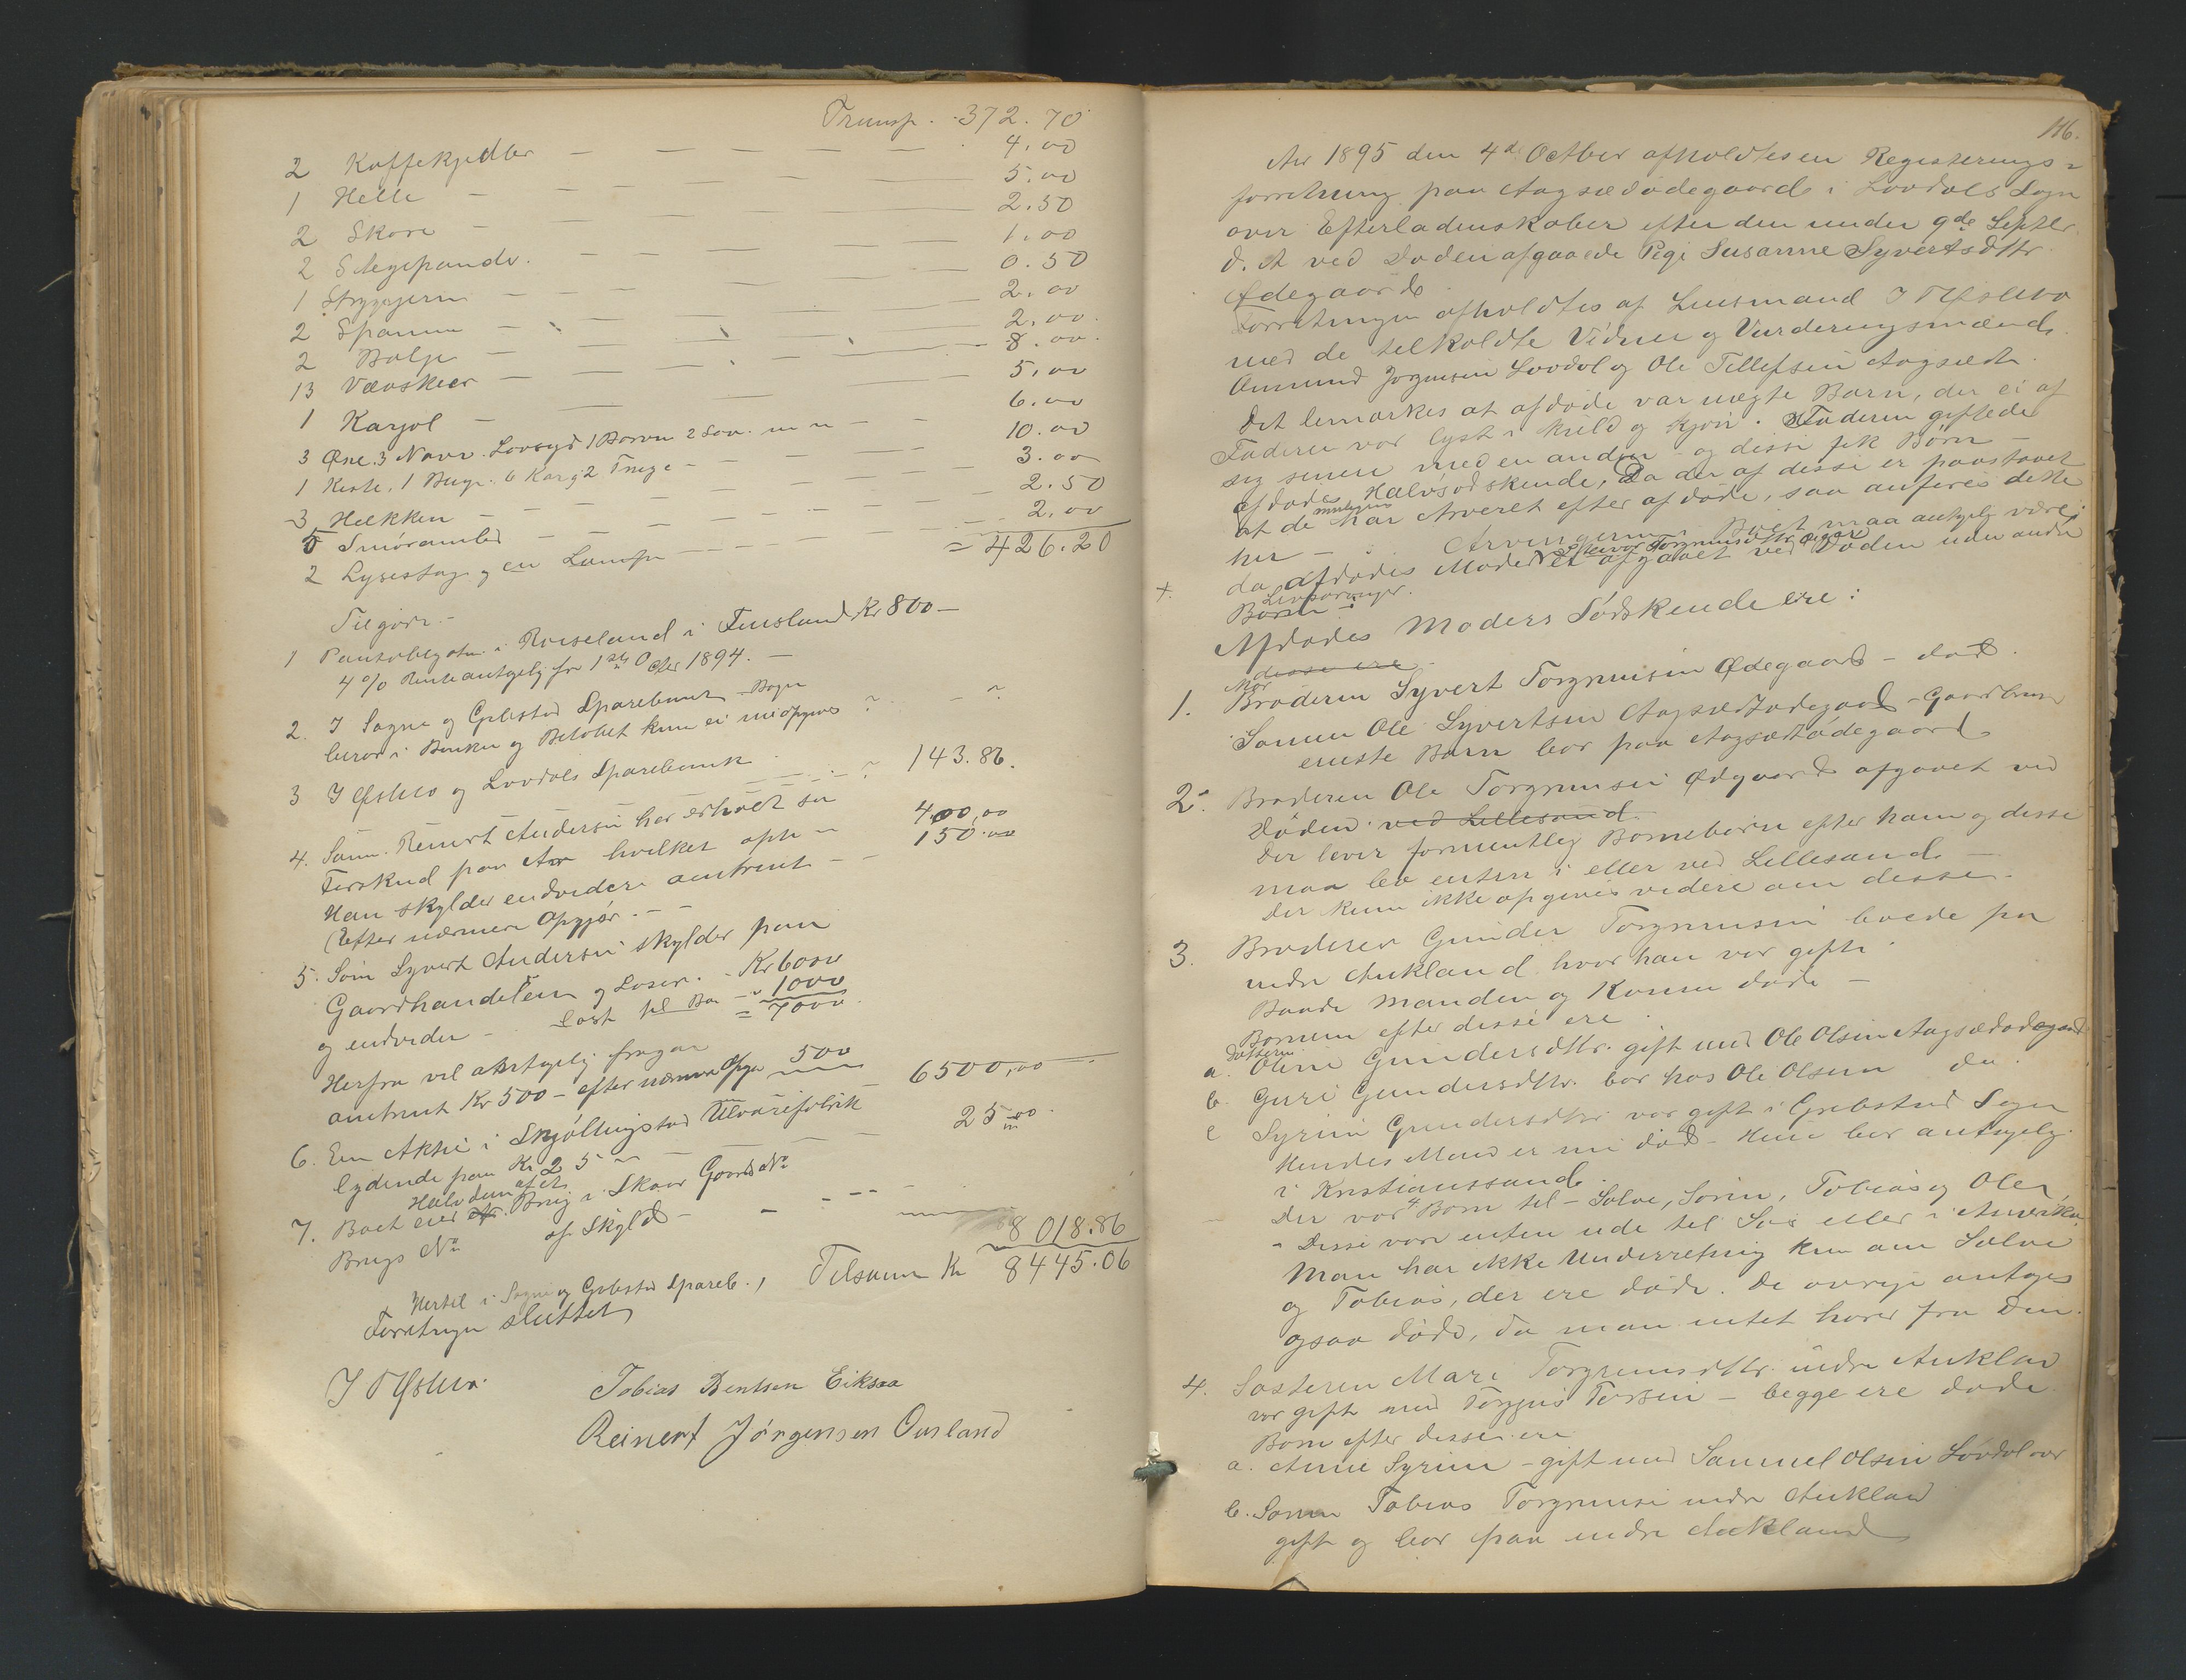 Transp. 372.70
2 Kaffekjedler — 4.00
1 Helle — 5.00
2 Skore — 2.50
2 Stegepander — 1.00
1 Strygejern — 0.50
2 Spanne — 2.00
2 Balje — 2.00
13 Vævskeer — 8.00
1 Karjol — 5.00
3 Øxe. 3 Navr. Lovsyd 1 Borvn 2 Sav. — 6.00
1 Kiste, 1 6 Kar 2 — 10.00
3 Hækken — 3.00
5 Smøramber — 2.50
2 Lysestag og en Lampe — 2.00
= 426.20
Tilgode.
1 Pantobligation i Røiseland i Finsland Kr 800 —
4 % Rente antagelig fra 1ste Octbr 1894. —
2. I Søgne og Greibstad Sparebank – Bogen
beror i Banken og Beløbet kan ei nu opgives ?
3 I Øslebø og Løvdals Sparebank ? 143.86.
4. Sønn. Reinert Andersen har erholdt en
Forskud paa Arv hvilket opfr 400,00
Han skylder endvidere omtrent — 150.00
(Efter nærmere Opgjør. —
5. Søn Syvert Andersen skylder paa
Gaardhandelen og Løsøre. Kr 6000
og endvider — 1000
= 7000.
Herfra vil antagelig fragaa
omtrent Kr 500 – efter nærmere Opgr 500
6500,00
6. En Aktie i Skjøllingstad Uldvarefabrik
lydende paa Kr 25 — 25.00
7. Boet eier Halvdelen af et Brug i Skaar Gaards No
Brugs No af Skyld —
8018.86
x Hertil i Søgne og Greibstad Spareb., Tilsamen Kr 8445.06
Forretnigen sluttet
J T Øslebø.
Tobias Bentsen Eiksaa
Reinert Jørgensen Ousland
116.
Aar 1895 den 4de Octber afholdtes en Registerings-
forretning paa Aagsædødegaard i Løvdals Sogn
over Efterladenskaber efter den under 9de Septbr
d. A ved Døden afgaaede Pige Susanne Syvertsdttr
Ødegaard.
Forretningen afholdtes af Lensmand J T Øslebø
med de tilkaldte Vidner og Vurderingsmænd
Aanund Jørgensen Løvdal og Ole Tellefsen Aagsædt.
Det bemærkes at afdøde var uægte Barn, der ei af
Faderen var lyst i Kuld og Kjøn. Faderen giftede
sig senere med en anden og disse fik Børn —
afdødes Halvsødskende, Da der af disse er paastaaet
at de muligens har Arveret efter afdøde, saa anføres dette
her — Arvingerne i Boet maa antagelig være:
x. da afdødes Moder Torgrimsdttr er afgaaet ved Døden uden andre
Børn – Livsarvinger.
Afdødes Moders Sødskende ere:
disse ere
1. Broderen Syvert Torgrimsen Ødegaard – død.
Sønnen Ole Syvertsen Aagsædtødegaard – Gaardbruger
eneste Barn bor paa Aagsædtødegaard
2. Broderen Ole Torgrimsen Ødegaard afgaaet ved
Døden. ved Lillesand.
Der lever formentlig Børnebørn efter ham og disse
maa bo enten i eller ved Lillesand —
Der kan ikke opgives videre om disse.
3. Broderen Gunder Torgrimsen boede paa
indre Aukland hvor han var gift.
Baade Manden og Konen døde —
Børnene efter disse ere
a. Datteren Oline Gundersdttr. gift med Ole Olsen Aagsædødegaard
b. Guri Gundersdttr. bor hos Ole Olsen do.
c Syrine Gundersdttr var gift i Greibstad Sogn
Hendes Mand er nu død – Hun bor antagelig
i Kristianssand.
Der var 4 Børn til – Salve, Søren, Tobias og Ole,
Disse vare enten ude til Søs eller i Amerika
Man har ikke Underretning kun om Salve
og Tobias, der ere døde. De øvrige antages
ogsaa døde, da man intet hører fra Dem.
4. Søsteren Mari Torgrimsdttr. indre Aukland
var gift med Torjus Torsen – begge ere døde
Børn efter disse ere
a. Anne Syrine – gift med Samuel Olsen Løvdal
b. Sønnen Tobias Torgrimsen indre Aukland
gift og bor paa indre Aukland